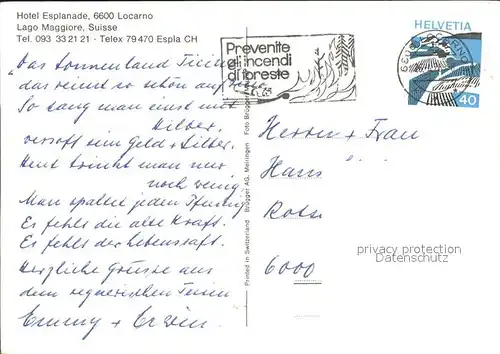 Hotel Esplanade, 6600 Locarno
Lago Maggiore, Suisse
Tel. 093 33 21 21 - Telex 79 470 Espla CH
"Das Sonnenland Tessin
das reimt so schön auf
So sang man einst mit
Hilber,
versoff sein Geld + Silber.
Heut trinkt man nur
noch wenig.
Man spaltet jeden Pfennig
Es fehlt die alte Kraft.
Es fehlt der Lebenssaft.
Herzliche Grüsse aus
dem regnerischen Tessin
Emmy + Erwin
Printed in Switzerland Brügger AG, Meiringen Foto Brügger
Prevenite
gli incendi
di foreste
LOCARNO
HELVETIA
40
Herrn + Frau
Hans
6000
privacy protection
Datenschutz